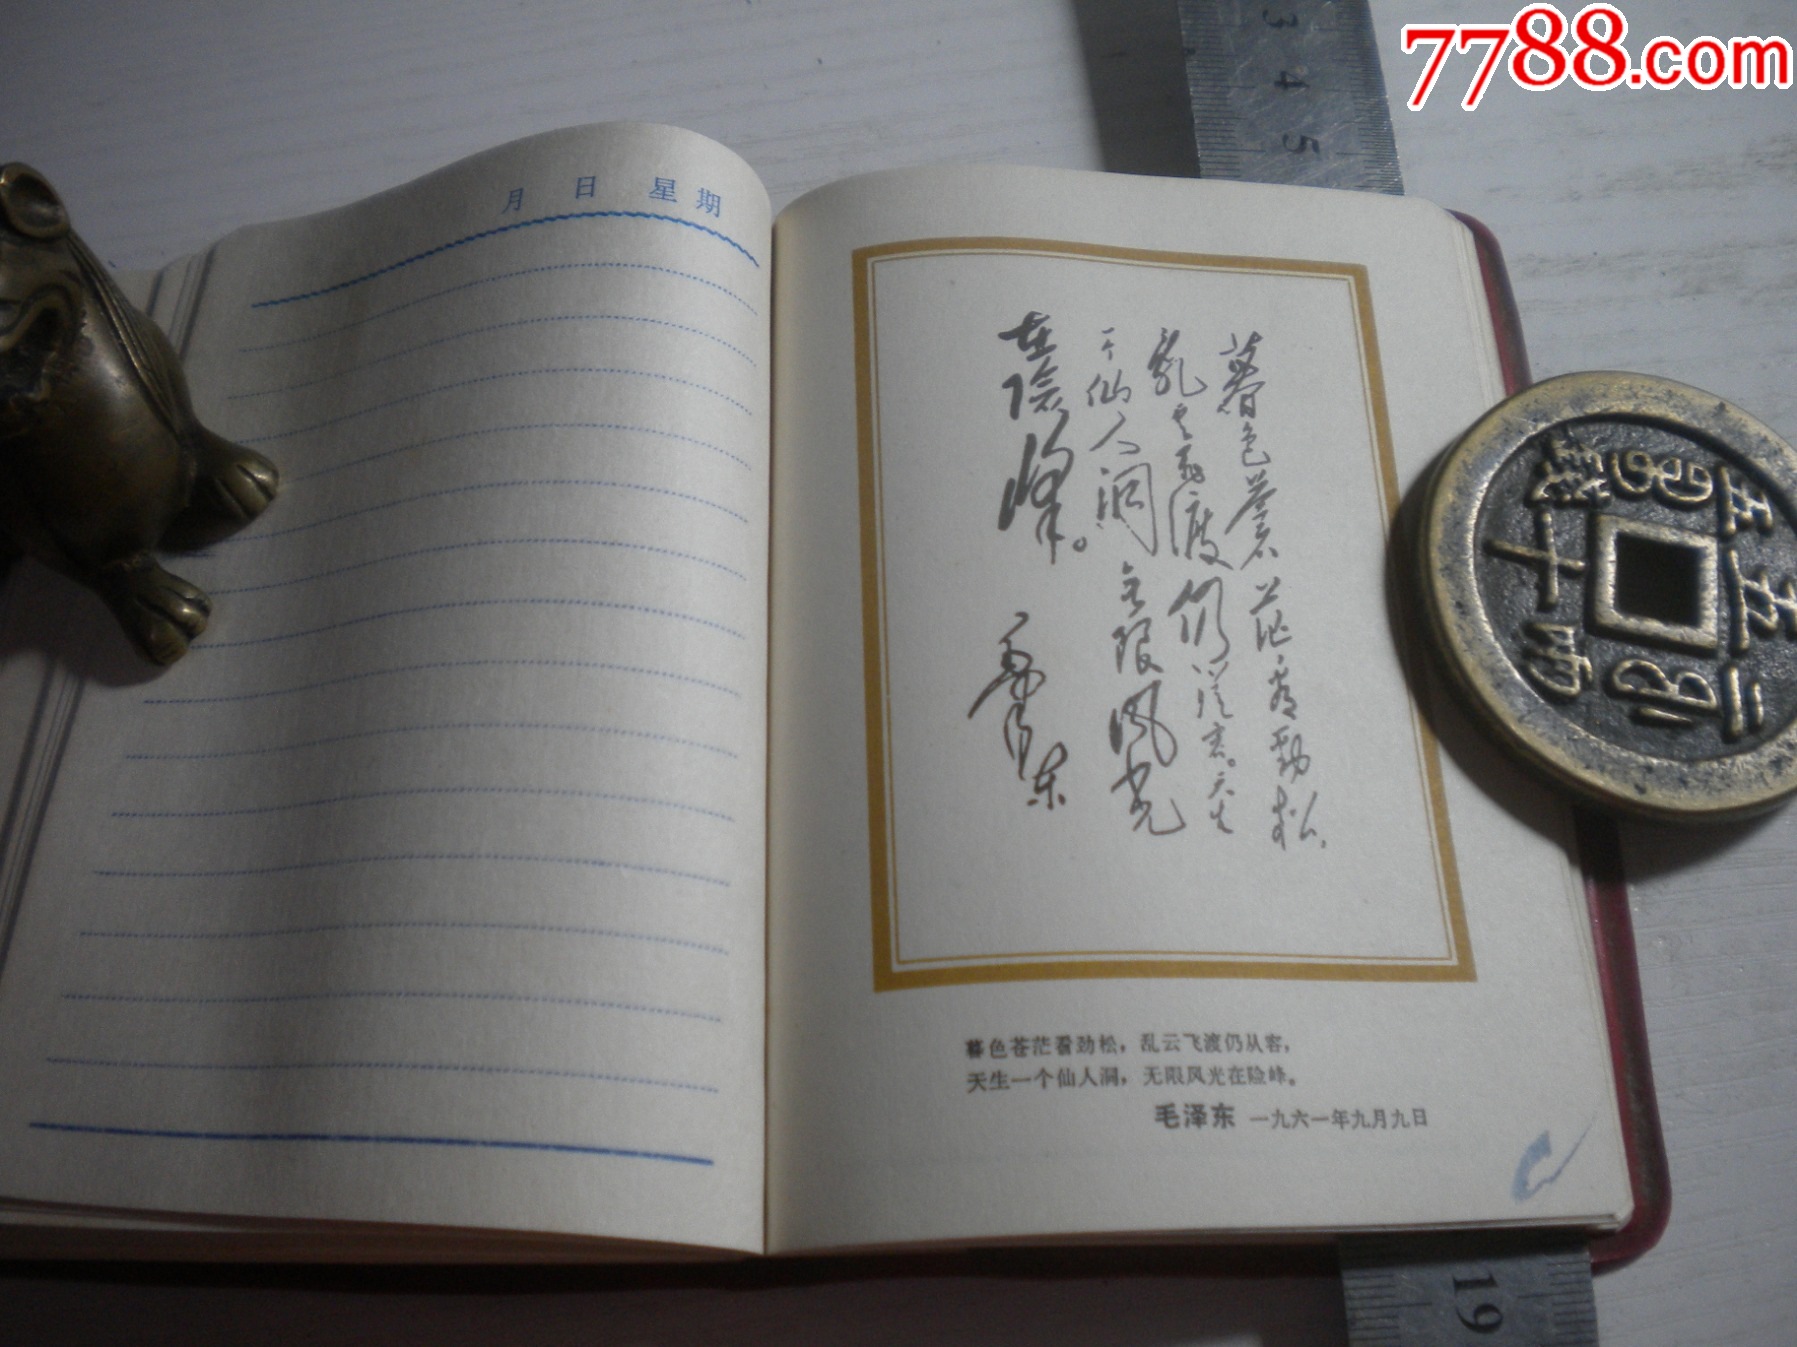 7788.com
3
4
5
月 日 星期
暮色苍茫看劲松,
乱云飞渡仍从容。天生
一个仙人洞 无限风光
在险峰。
毛泽东
暮色苍茫看劲松，乱云飞渡仍从容，
天生一个仙人洞，无限风光在险峰。
毛泽东 一九六一年九月九日
19